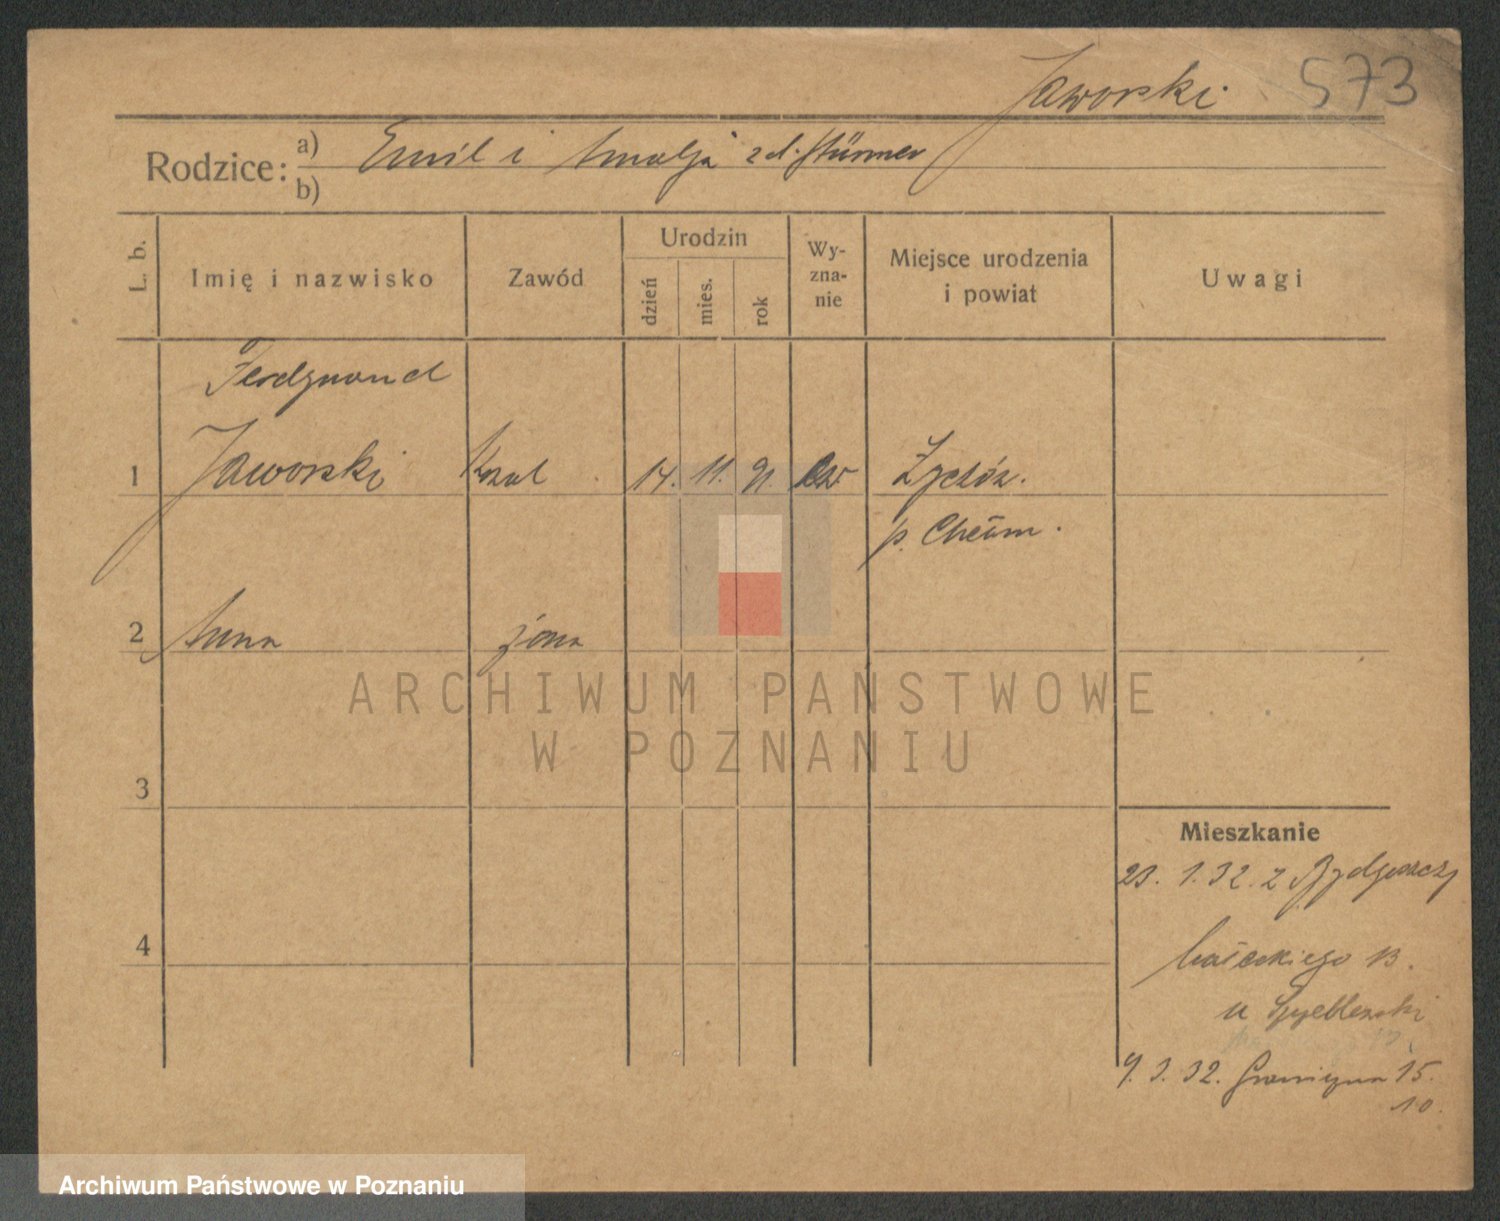 Jaworski 573
Rodzice: a) Emil i Amalja zd. Stürmer
b)
L. b. Imię i nazwisko Zawód Urodzin dzień mies. rok Wy-zna-nie Miejsce urodzenia i powiat Uwagi
Ferdynand
1 Jaworski 14. 11. 91.
p. Chełm.
2 Anna żona
ARCHIWUM PAŃSTWOWE
W POZNANIU
3
Mieszkanie
23. 1. 32. z Bydgoszczy
4
Małeckiego 13.
u
9. 3. 32. Graniczna 15.
10.
Archiwum Państwowe w Poznaniu